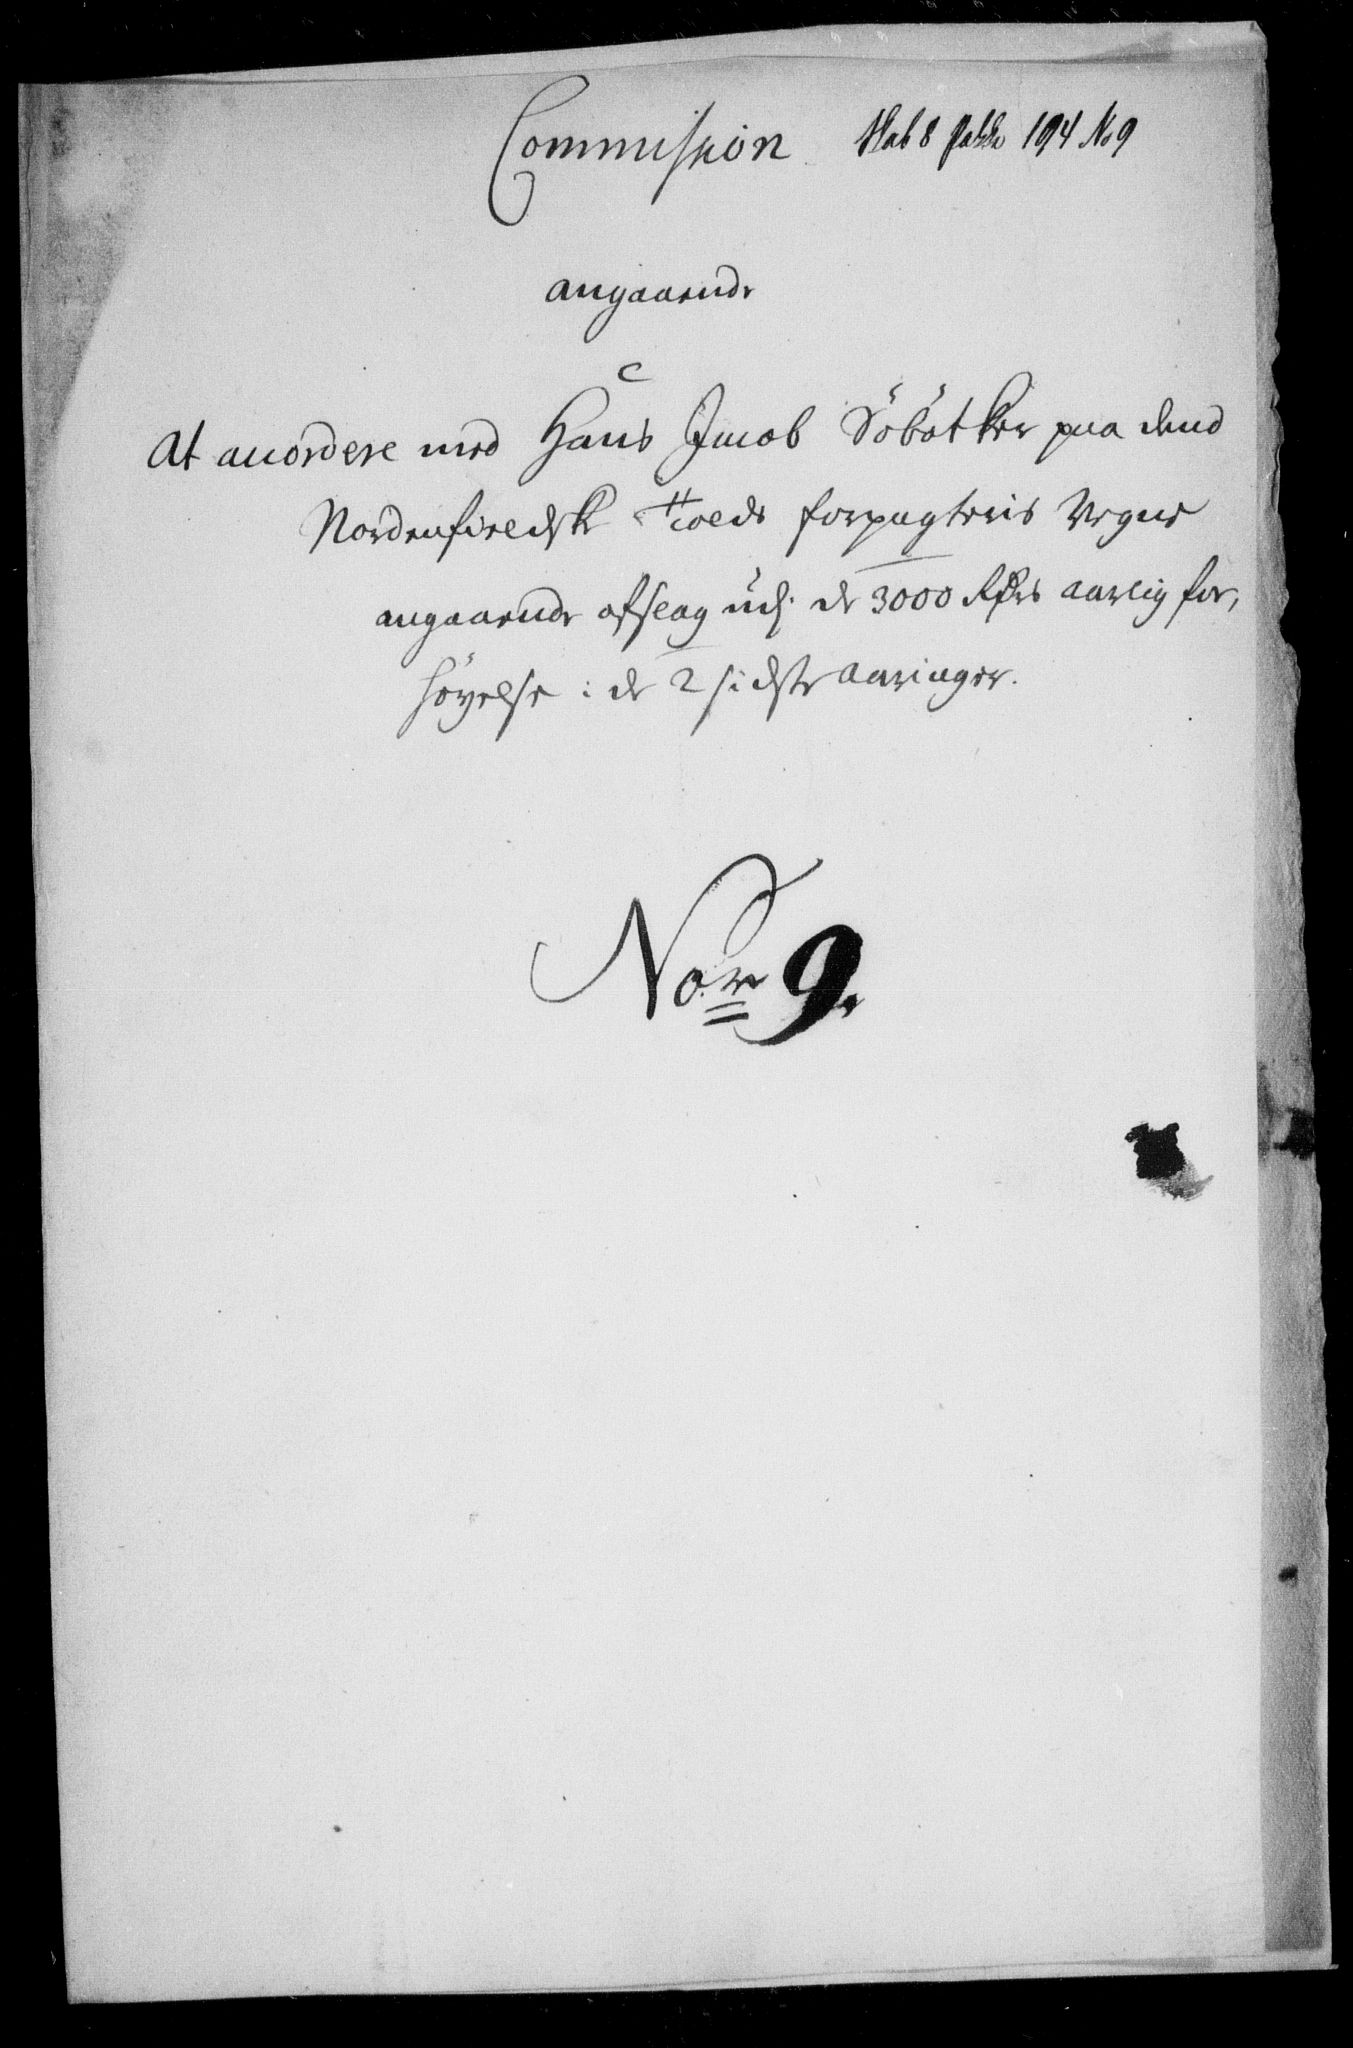 Commission Skab 8 Pakke 194 No 9
angaaende
At accordere med Hans Jacob Söbötker paa dend
Nordenfieldske Tolds forpagteris Vegne
angaaende afslag udj de 3000 Rdrs aarlig for,
höyelse i de 2 sidste Aaringer.
No 9.